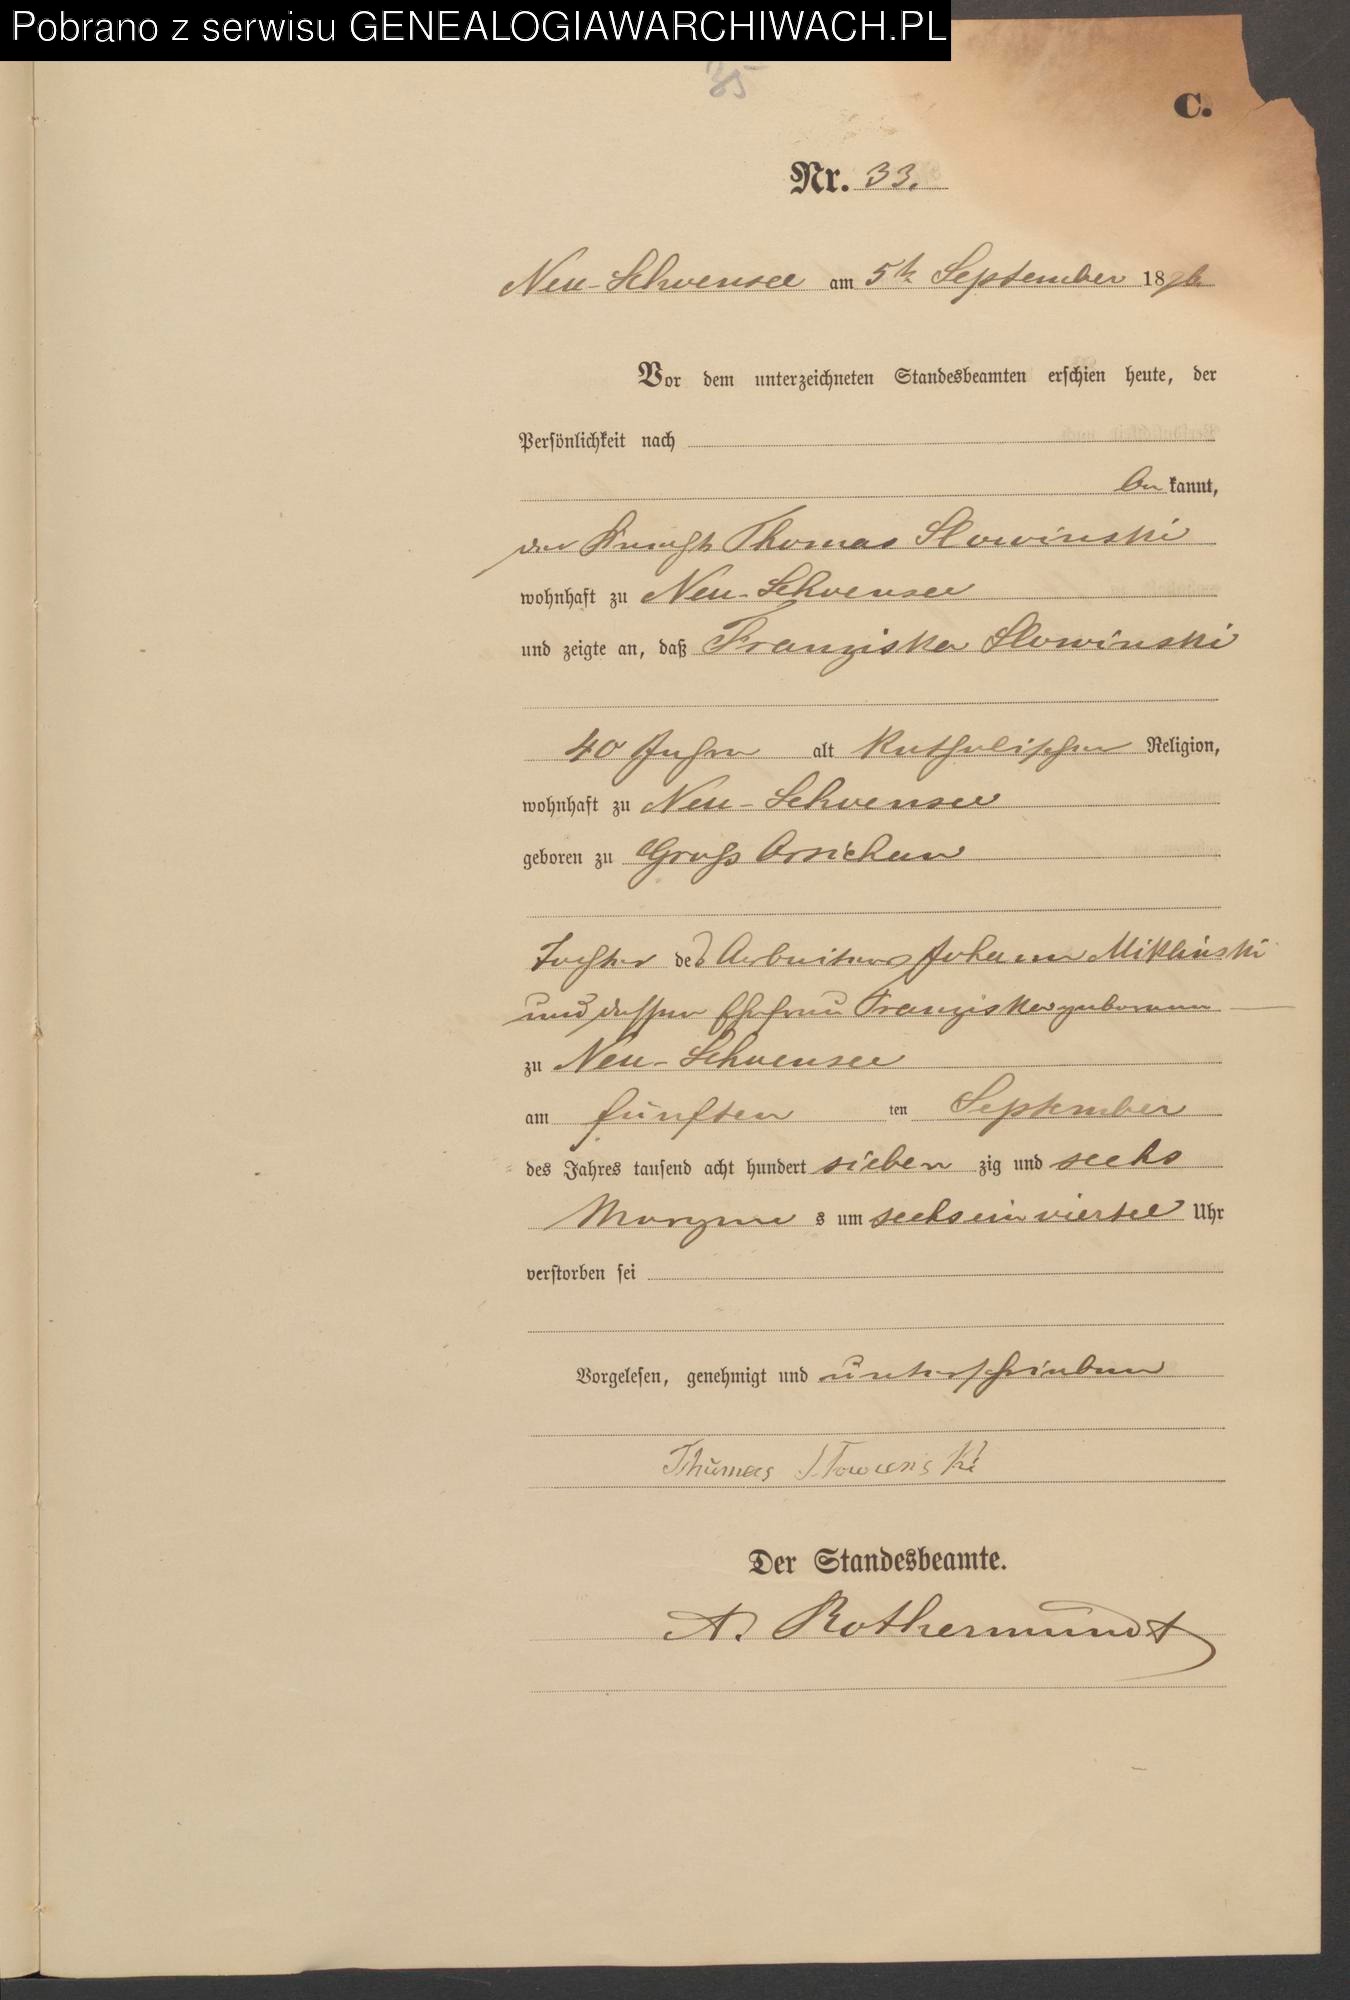 Pobrano z serwisu GENEALOGIAWARCHIWACH.PL
35
C.
Nr. 33.
Neu-Schoensee am 5t September 1876
Vor dem unterzeichneten Standesbeamten erschien heute, der
Persönlichkeit nach
be kannt,
der Knecht Thomas Slowinski
wohnhaft zu Neu-Schoensee
und zeigte an, daß Franziska Slowinski
40 Jahre alt katholischer Religion,
wohnhaft zu Neu-Schoensee
geboren zu Groß
Tochter des Arbeiters Johann Miklinski
und dessen Ehefrau Franziska geborenen
zu Neu-Schoensee
am fünften ten September
des Jahres tausend acht hundert sieben zig und sechs
Morgens s um sechs ein viertel Uhr
verstorben sei
Vorgelesen, genehmigt und unterschrieben
Thumas Slowinski
Der Standesbeamte.
A. Rothermundt